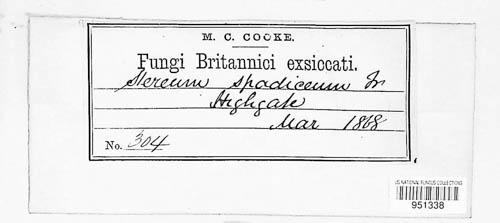 M. C. COOKE.
Fungi Britannici exsiccati.
Stereum spadiceum Fr
Highgate
Mar 1868
No. 304
US NATIONAL FUNGUS COLLECTIONS
951338